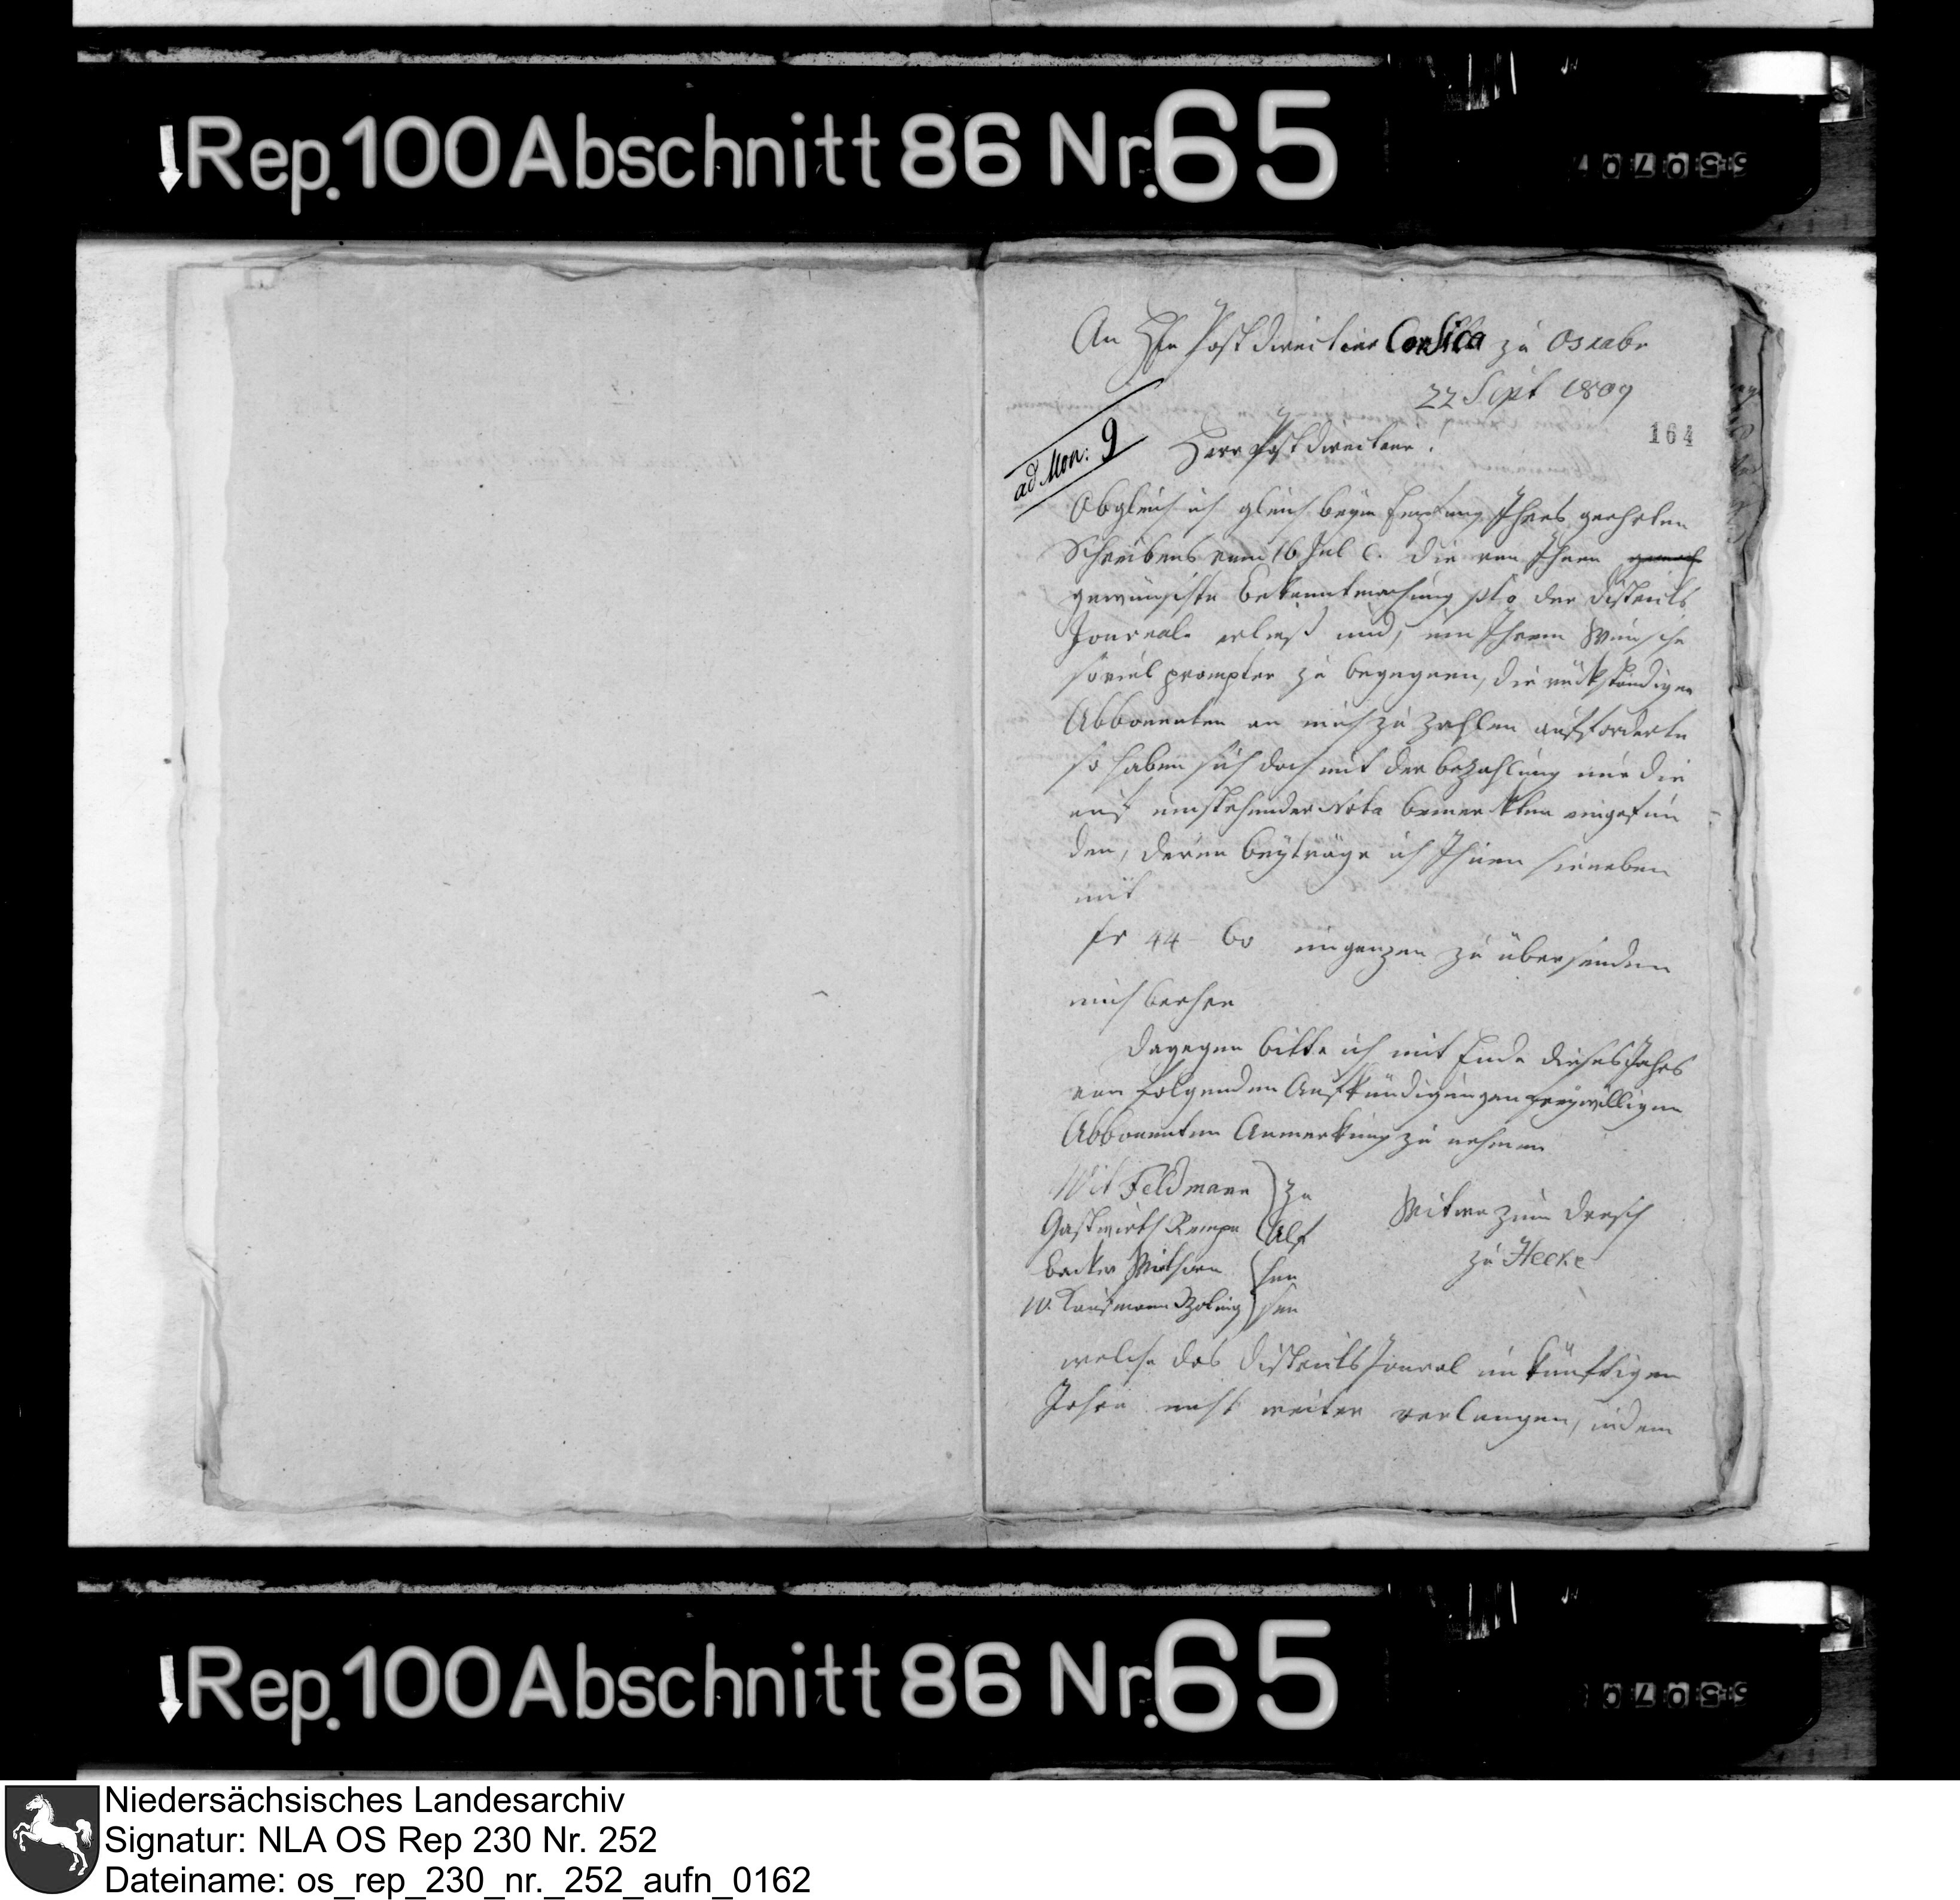 Rep. 100 Abschnitt 86 Nr. 65
An Hn Postdirecteur Corsica zu Osnabr
22 Sept 1809
164
ad Mon: 9
Herr Postdirecteur!
Obgleich ich gleich beym Empfang Ihres geehrten
Schreibens vom 16 Jul c. die von Ihnen
gewünschte Bekanntmachung pto der Districts
Journale erließ und, um Ihrem Wunsche
soviel prompter zu begegnen, die rückständigen
Abbonenten an mich zu zahlen aufforderte
so haben sich doch mit der Bezahlung nur die
auf umstehender Nota bemerkten eingefun
den, deren Beyträge ich Ihnen hieneben
mit
fr 44 - 60 im ganzen zu übersenden
mich beehre
Dagegen bitte ich mit Ende dieses Jahrs
von folgenden Aufkündigungen freywilligen
Abbonenten Anmerkung zu nehmen
Wit Feldmann
Gastwirth Rempe
Becker
W. Kaufmann
zu
Alf
hau
sen
Witwe zum Dresch
zu Hecke
welche das Districts Journal im künftigen
Jahre nicht weiter verlangen, indem
Rep. 100 Abschnitt 86 Nr. 65
Niedersächsisches Landesarchiv
Signatur: NLA OS Rep 230 Nr. 252
Dateiname: os_rep_230_nr._252_aufn_0162